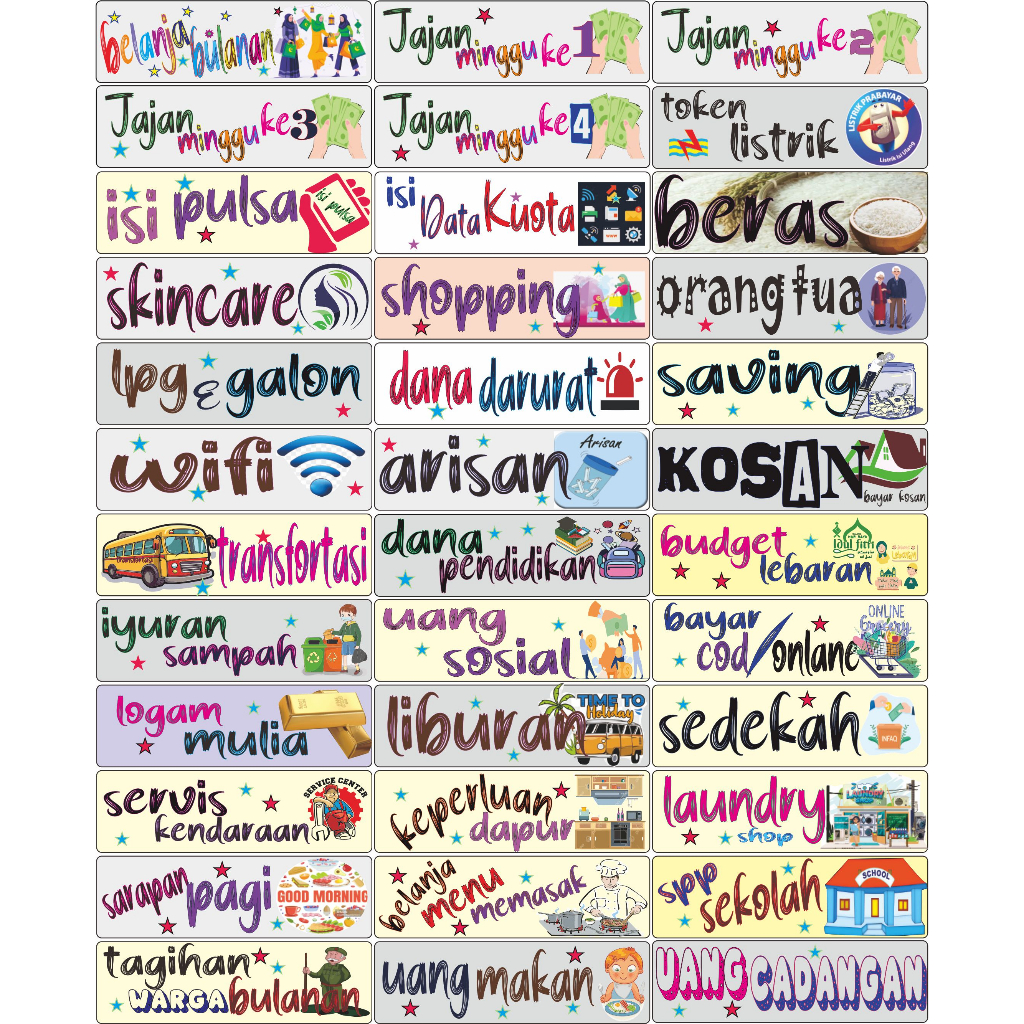 belanja bulanan
Jajan
minggu ke 1
Jajan
minggu ke 2
Jajan
minggu ke 3
Jajan
minggu ke 4
token
listrik
LISTRIK PRABAYAR
Listrik Isi Ulang
isi pulsa
isi pulsa
isi
Data Kuota
www
beras
skincare
shopping
orang tua
lpg & galon
dana darurat
saving
wifi
arisan
Arisan
KOSAN
bayar kosan
transfortasi
dana
pendidikan
budget
lebaran
idul fitri
iyuran
sampah
uang
sosial
bayar
cod/onlane
ONLINE
Grocery
logam
mulia
liburan
TIME TO
Holiday
sedekah
INFAQ
servis
kendaraan
SERVICE CENTER
keperluan
dapur
laundry
shop
LAUNDRY
sarapan pagi
GOOD MORNING
belanja
menu
memasak
spp
sekolah
SCHOOL
tagihan
WARGA bulanan
uang makan
UANG CADANGAN